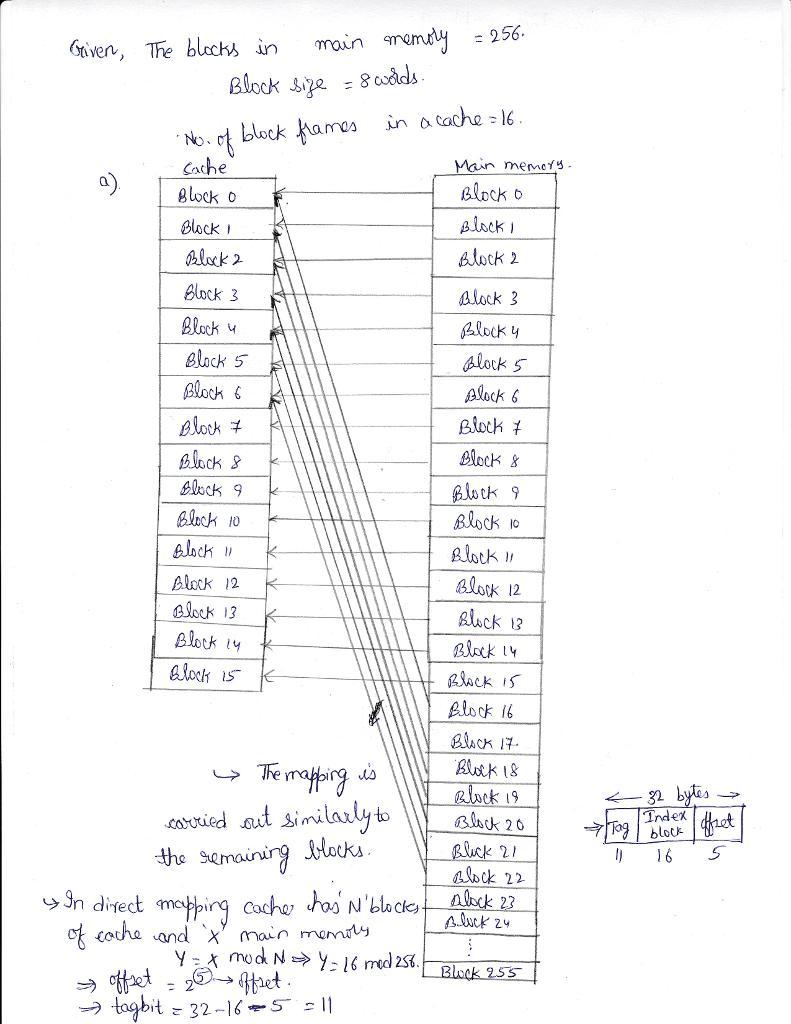 Given, The blocks in main memory = 256.
Block size = 8 words.
No. of block frames in a cache = 16.
a)
Cache
Block 0
Block 1
Block 2
Block 3
Block 4
Block 5
Block 6
Block 7
Block 8
Block 9
Block 10
Block 11
Block 12
Block 13
Block 14
Block 15
Main memory.
Block 0
Block 1
Block 2
Block 3
Block 4
Block 5
Block 6
Block 7
Block 8
Block 9
Block 10
Block 11
Block 12
Block 13
Block 14
Block 15
Block 16
Block 17.
Block 18
Block 19
Block 20
Block 21
Block 22
Block 23
Block 24
⋮
Block 255
↳ The mapping is
carried out similarly to
the remaining blocks.
← 32 bytes →
⇒ Tag Index block offset
11 16 5
↳ In direct mapping cache has 'N' blocks
of cache and 'X' main memory
Y = X mod N ⇒ Y = 16 mod 256.
⇒ offset = 2⑤ → offset.
⇒ tagbit = 32 - 16 - 5 = 11